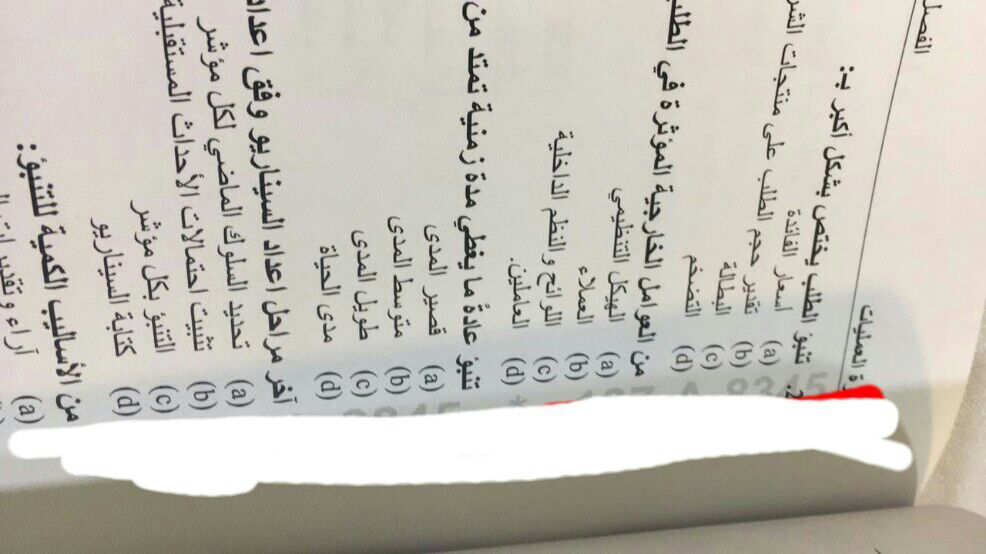 الفصل
ة العمليات
2. تنبؤ الطلب يختص بشكل أكبر بـ:
(a) أسعار الفائدة
(b) تقدير حجم الطلب على منتجات الشر
(c) البطالة
(d) التضخم
من العوامل الخارجية المؤثرة في الطلب
(a) الهيكل التنظيمي
(b) العملاء
(c) اللوائح والنظم الداخلية
(d) العاملين.
تنبؤ عادةً ما يغطي مدة زمنية تمتد من
(a) قصير المدى
(b) متوسط المدى
(c) طويل المدى
(d) مدى الحياة
آخر مراحل اعداد السيناريو وفق اعداد
(a) تحديد السلوك الماضي لكل مؤشر
(b) تثبيت احتمالات الأحداث المستقبلية
(c) التنبؤ بكل مؤشر
(d) كتابة السيناريو
من الأساليب الكمية للتنبؤ:
(a) آراء وتقديرات